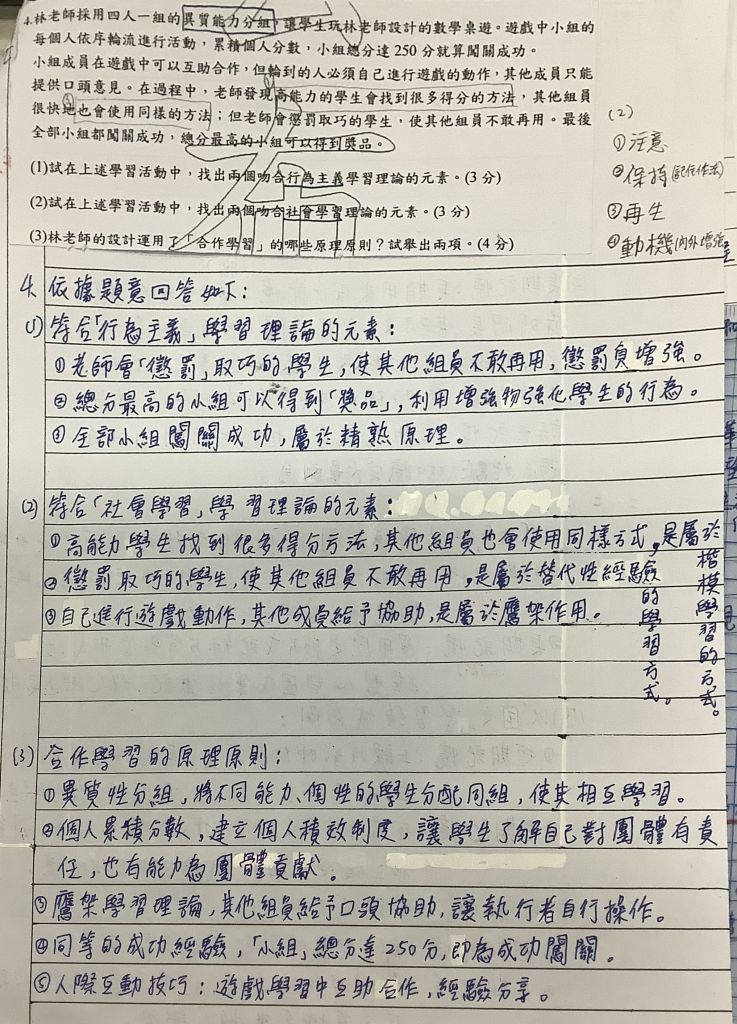 4.林老師採用四人一組的異質能力分組，讓學生玩林老師設計的數學桌遊。遊戲中小組的
每個人依序輪流進行活動，累積個人分數，小組總分達 250 分就算闖關成功。
小組成員在遊戲中可以互助合作，但輪到的人必須自己進行遊戲的動作，其他成員只能
提供口頭意見。在過程中，老師發現高能力的學生會找到很多得分的方法，其他組員
很快地也會使用同樣的方法；但老師會懲罰取巧的學生，使其他組員不敢再用。最後
全部小組都闖關成功，總分最高的小組可以得到獎品。
(1)試在上述學習活動中，找出兩個吻合行為主義學習理論的元素。(3 分)
(2)試在上述學習活動中，找出兩個吻合社會學習理論的元素。(3 分)
(3)林老師的設計運用了「合作學習」的哪些原理原則？試舉出兩項。(4 分)
(2)
①注意
②保持(記住作法)
③再生
④動機(內外增強)
4. 依據題意回答如下：
(1) 符合「行為主義」學習理論的元素：
①老師會「懲罰」取巧的學生，使其他組員不敢再用，懲罰負增強。
②總分最高的小組可以得到「獎品」，利用增強物強化學生的行為。
③全部小組闖關成功，屬於精熟原理。
(2) 符合「社會學習」學習理論的元素：
①高能力學生找到很多得分方法，其他組員也會使用同樣方式，是屬於楷模學習的方式。
②懲罰取巧的學生，使其他組員不敢再用，是屬於替代性經驗的學習方式。
③自己進行遊戲動作，其他成員給予協助，是屬於鷹架作用。
(3) 合作學習的原理原則：
①異質性分組，將不同能力、個性的學生分配同組，使其相互學習。
②個人累積分數，建立個人積效制度，讓學生了解自己對團體有責
任，也有能力為團體貢獻。
③鷹架學習理論，其他組員給予口頭協助，讓執行者自行操作。
④同等的成功經驗，「小組」總分達250分，即為成功闖關。
⑤人際互動技巧：遊戲學習中互助合作，經驗分享。